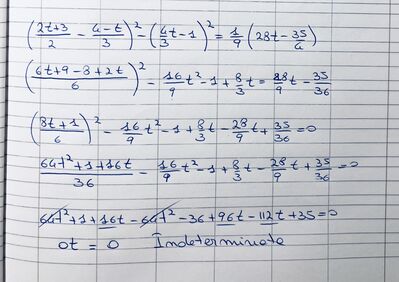 ((2t+3)/2 - (4-t)/3)² - (4/3 t - 1)² = 1/9 (28t - 35/4)
((6t+9-8+2t)/6)² - 16/9 t² - 1 + 8/3 t = 28/9 t - 35/36
((8t+1)/6)² - 16/9 t² - 1 + 8/3 t - 28/9 t + 35/36 = 0
(64t²+1+16t)/36 - 16/9 t² - 1 + 8/3 t - 28/9 t + 35/36 = 0
64t² + 1 + 16t - 64t² - 36 + 96t - 112t + 35 = 0
0t = 0 Indeterminate